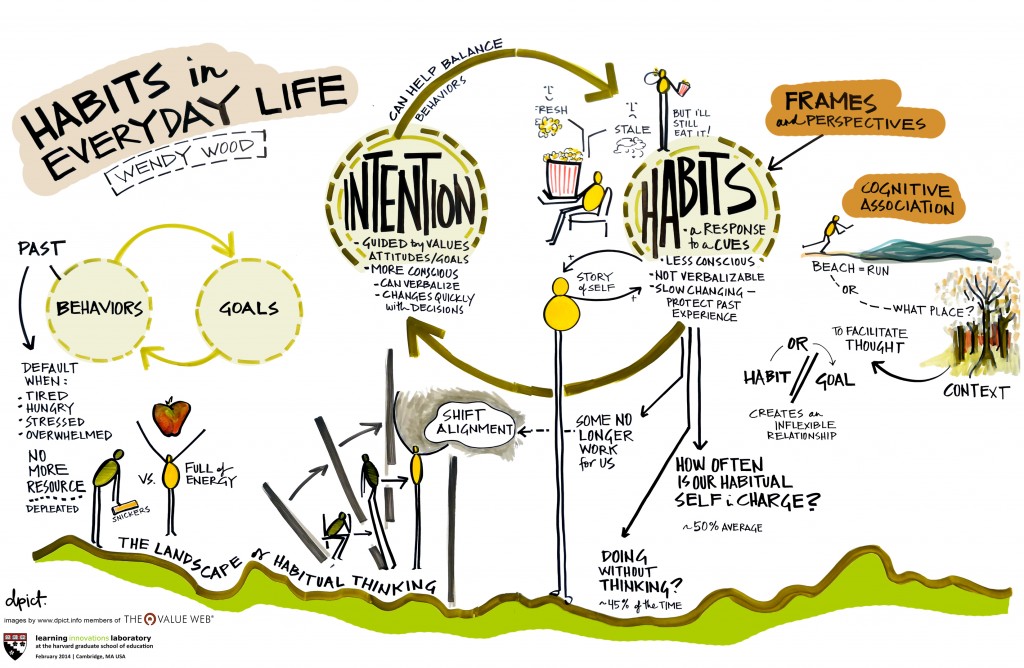 HABITS in
EVERYDAY LIFE
WENDY WOOD
PAST
BEHAVIORS
GOALS
DEFAULT
WHEN:
• TIRED
• HUNGRY
• STRESSED
• OVERWHELMED
NO
MORE
RESOURCE
DEPLETED
SNICKERS
VS.
FULL of
ENERGY
CAN HELP BALANCE
BEHAVIORS
INTENTION
- GUIDED by VALUES
ATTITUDES/GOALS
- MORE CONSCIOUS
- CAN VERBALIZE
- CHANGES QUICKLY
with DECISIONS
FRESH
STALE
BUT I'LL
STILL
EAT IT!
HABITS
- a RESPONSE
to a CUES
- LESS CONSCIOUS
- NOT VERBALIZABLE
- SLOW CHANGING -
PROTECT PAST
EXPERIENCE
STORY
of SELF
+
+
FRAMES
and PERSPECTIVES
COGNITIVE
ASSOCIATION
BEACH = RUN
OR
WHAT PLACE?
TO FACILITATE
THOUGHT
CONTEXT
OR
HABIT // GOAL
CREATES an
INFLEXIBLE
RELATIONSHIP
SHIFT
ALIGNMENT
SOME NO
LONGER
WORK
for US
HOW OFTEN
IS OUR HABITUAL
SELF in CHARGE?
~50% AVERAGE
DOING
WITHOUT
THINKING?
~45% of the TIME
THE LANDSCAPE of HABITUAL THINKING
dpict.
images by www.dpict.info members of THE VALUE WEB®
learning innovations laboratory
at the harvard graduate school of education
February 2014 | Cambridge, MA USA